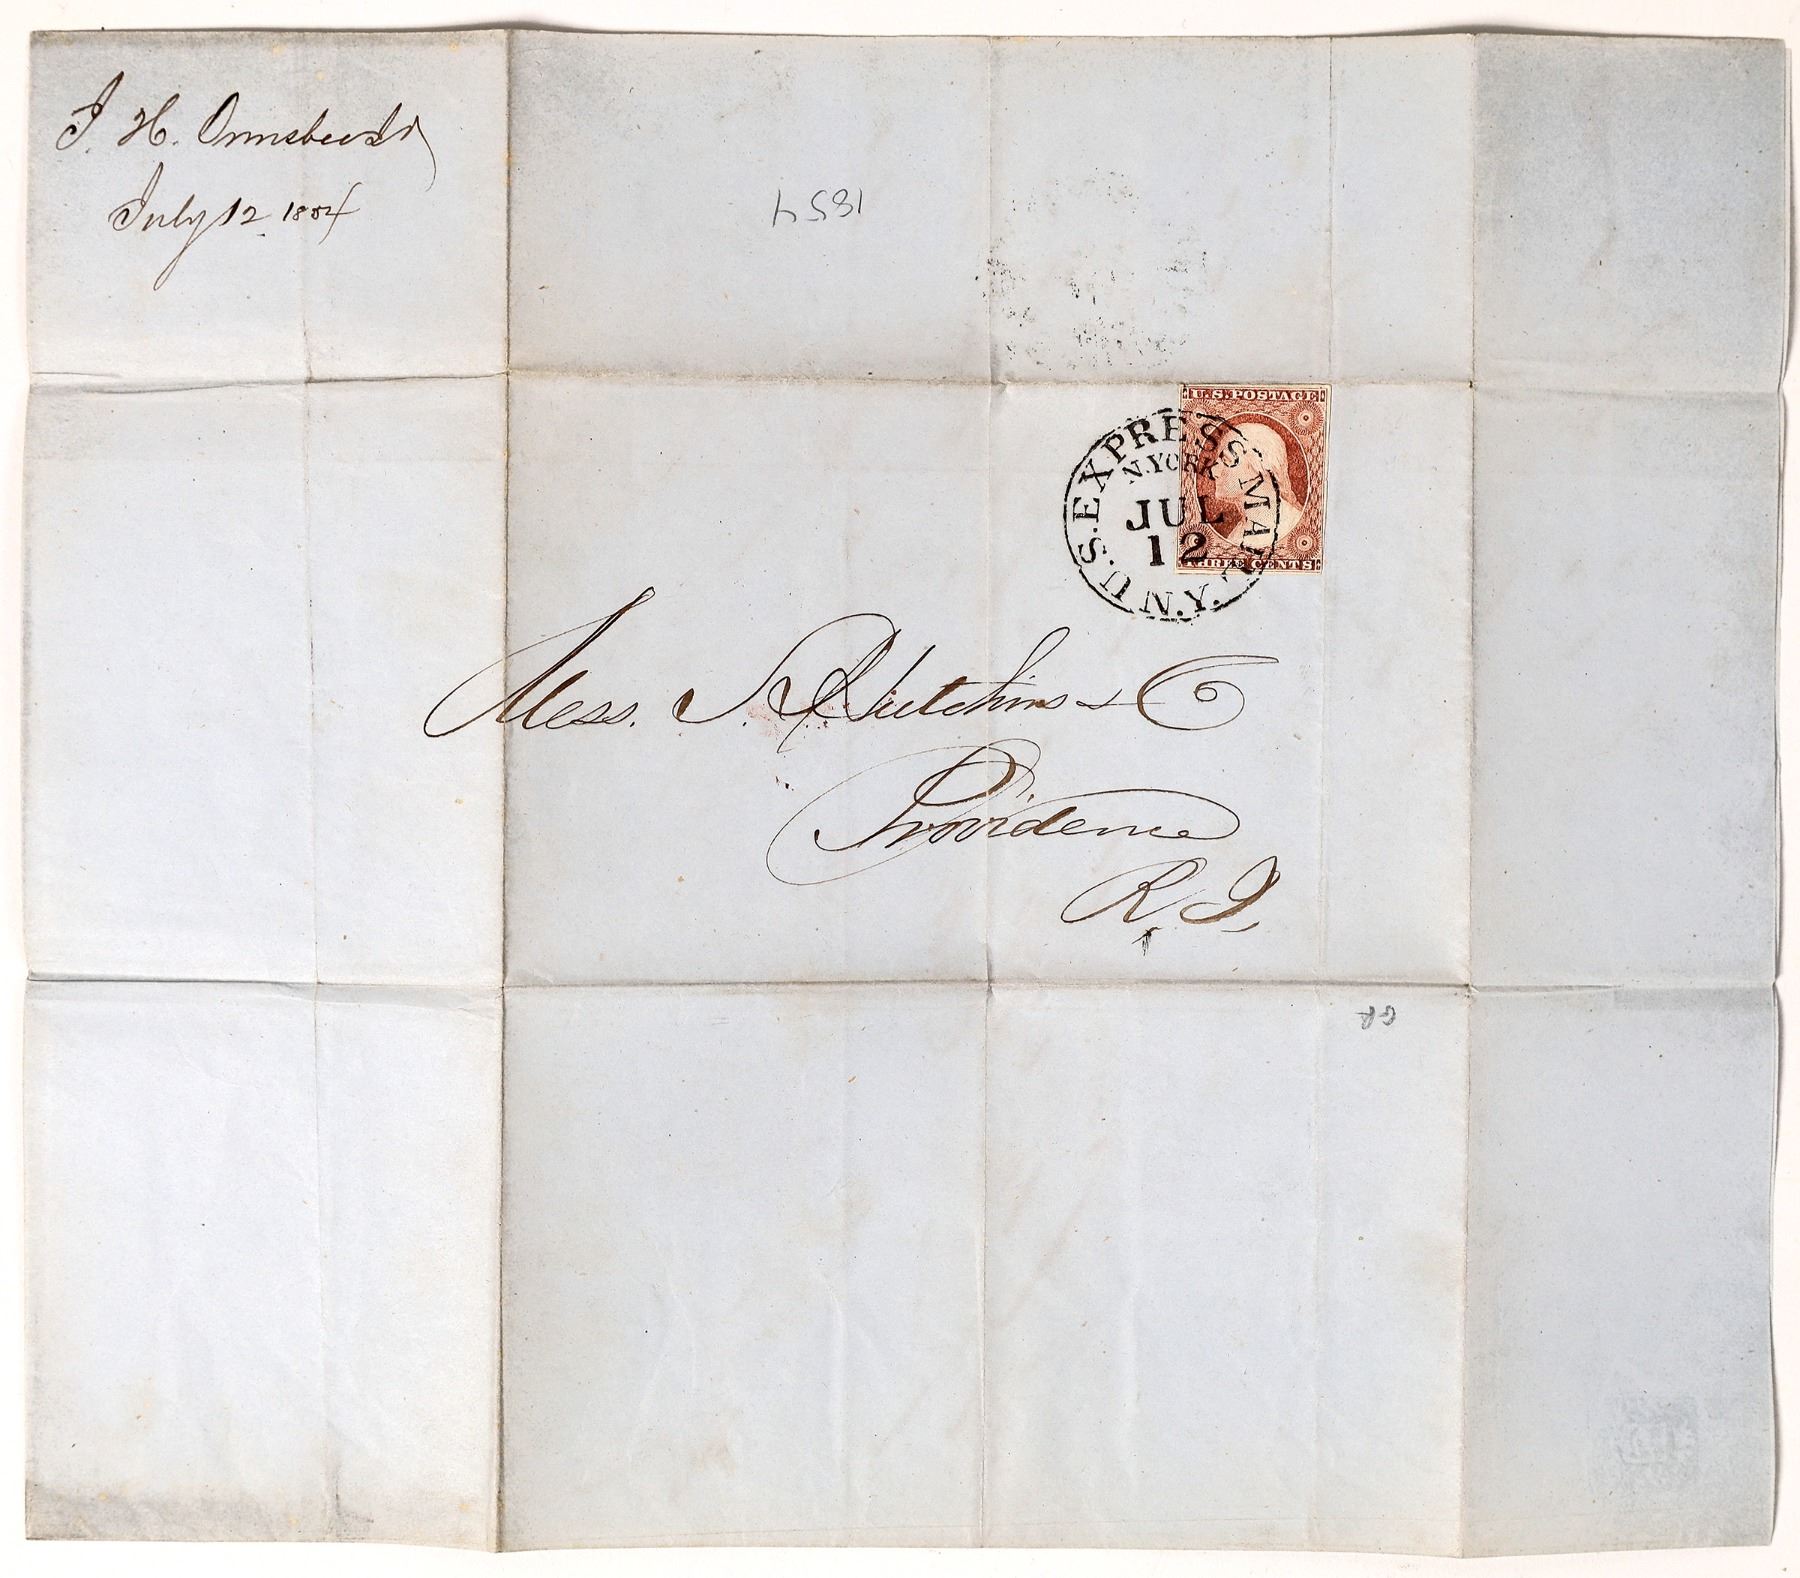 J. H. Ormsbee
July 12 1854
1854
U.S. POSTAGE
THREE CENTS
U.S. EXPRESS MAIL N.Y.
N. YORK
JUL
12
Mess. S. Hutchins & Co
Providence
R I,